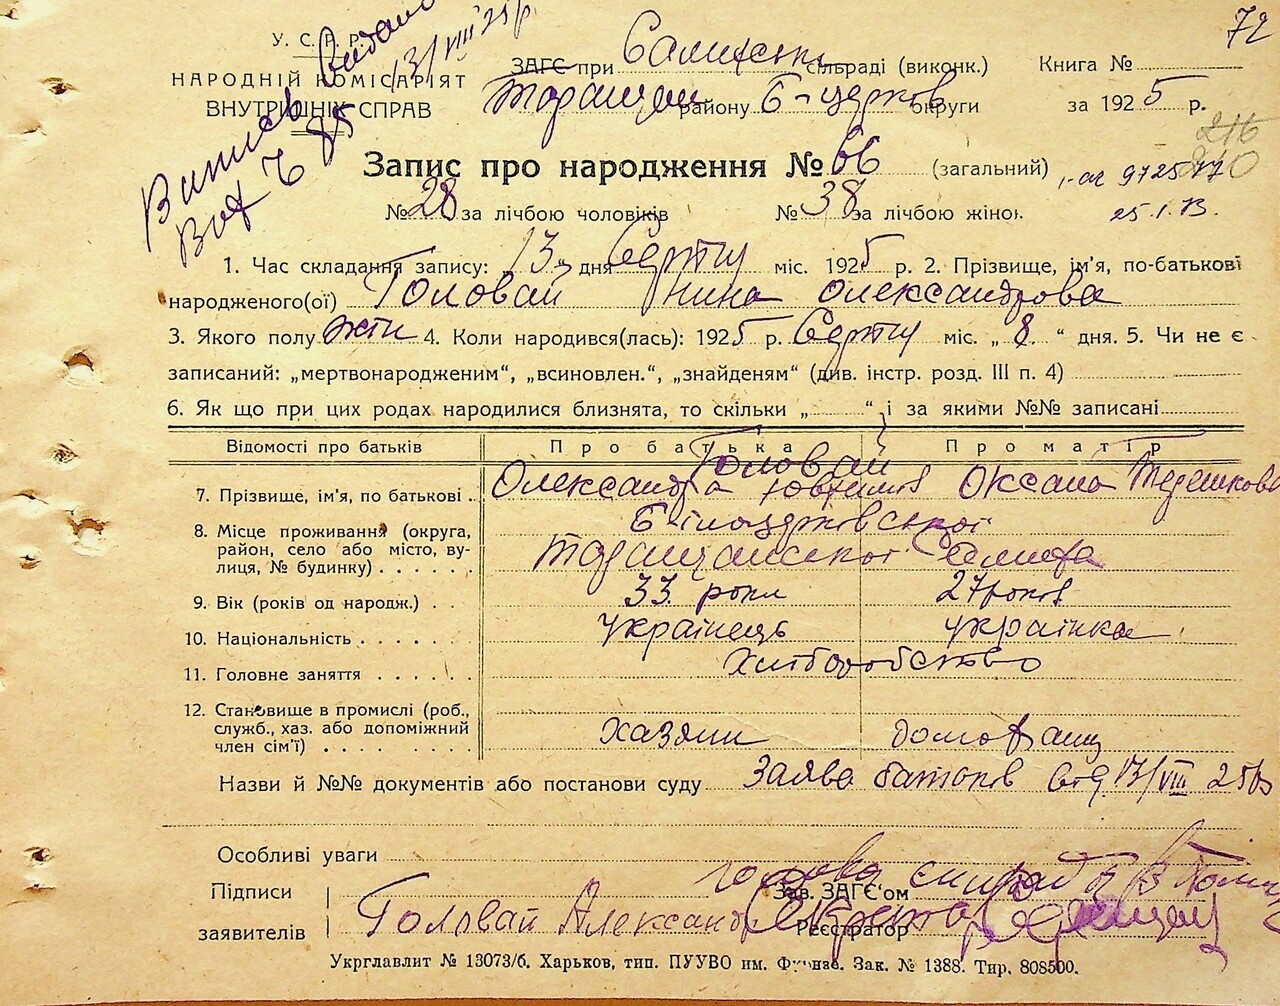 72
У. С. Р. Р.
НАРОДНІЙ КОМІСАРІЯТ
ВНУТРІШНІХ СПРАВ
Випись видано 13/VIII 25 р.
85
ЗАГС при сільраді (виконк.) Книга №
району Б-церков округи за 1925 р.
216
210
Запис про народження № 66 (загальний)
№ 28 за лічбою чоловіків № 38 за лічбою жінок
25.1.73.
1. Час складання запису: „13“ дня Серпня міс. 1925 р. 2. Прізвище, ім'я, по-батькові
народженого(ої) Головай Нина Олександрова
3. Якого полу жін 4. Коли народився(лась): 1925 р. Серпня міс. „ 8. “ дня. 5. Чи не є
записаний: „мертвонародженим“, „всиновлен.“, „знайденям“ (див. інстр. розд. III п. 4)
6. Як що при цих родах народилися близнята, то скільки „ “ і за якими №№ записані
Відомості про батьків Про батька Про матір
Головай
7. Прізвище, ім'я, по батькові Олександра Юхтимів Оксана Терешкова
8. Місце проживання (округа, Білоцерківської
район, село або місто, ву-
лиця, № будинку)
9. Вік (років од народж.) 33 роки 27 років
10. Національність українець українка
11. Головне заняття Хліборобство
12. Становище в промислі (роб.,
служб., хаз. або допоміжний
член сім'ї) хазяин
Назви й №№ документів або постанови суду Заява батьків від 13/VIII 25 р
Особливі уваги
Підписи голова Зав. ЗАГС'ом
заявителів Головай Александр Секретар Реєстратор
Укрглавліт № 13073/6. Харьков, тип. ПУУВО им. Фрунзе. Зак. № 1388. Тир. 808500.